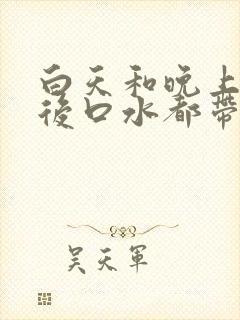 白天和晚上
後口水都帶
吴天軍